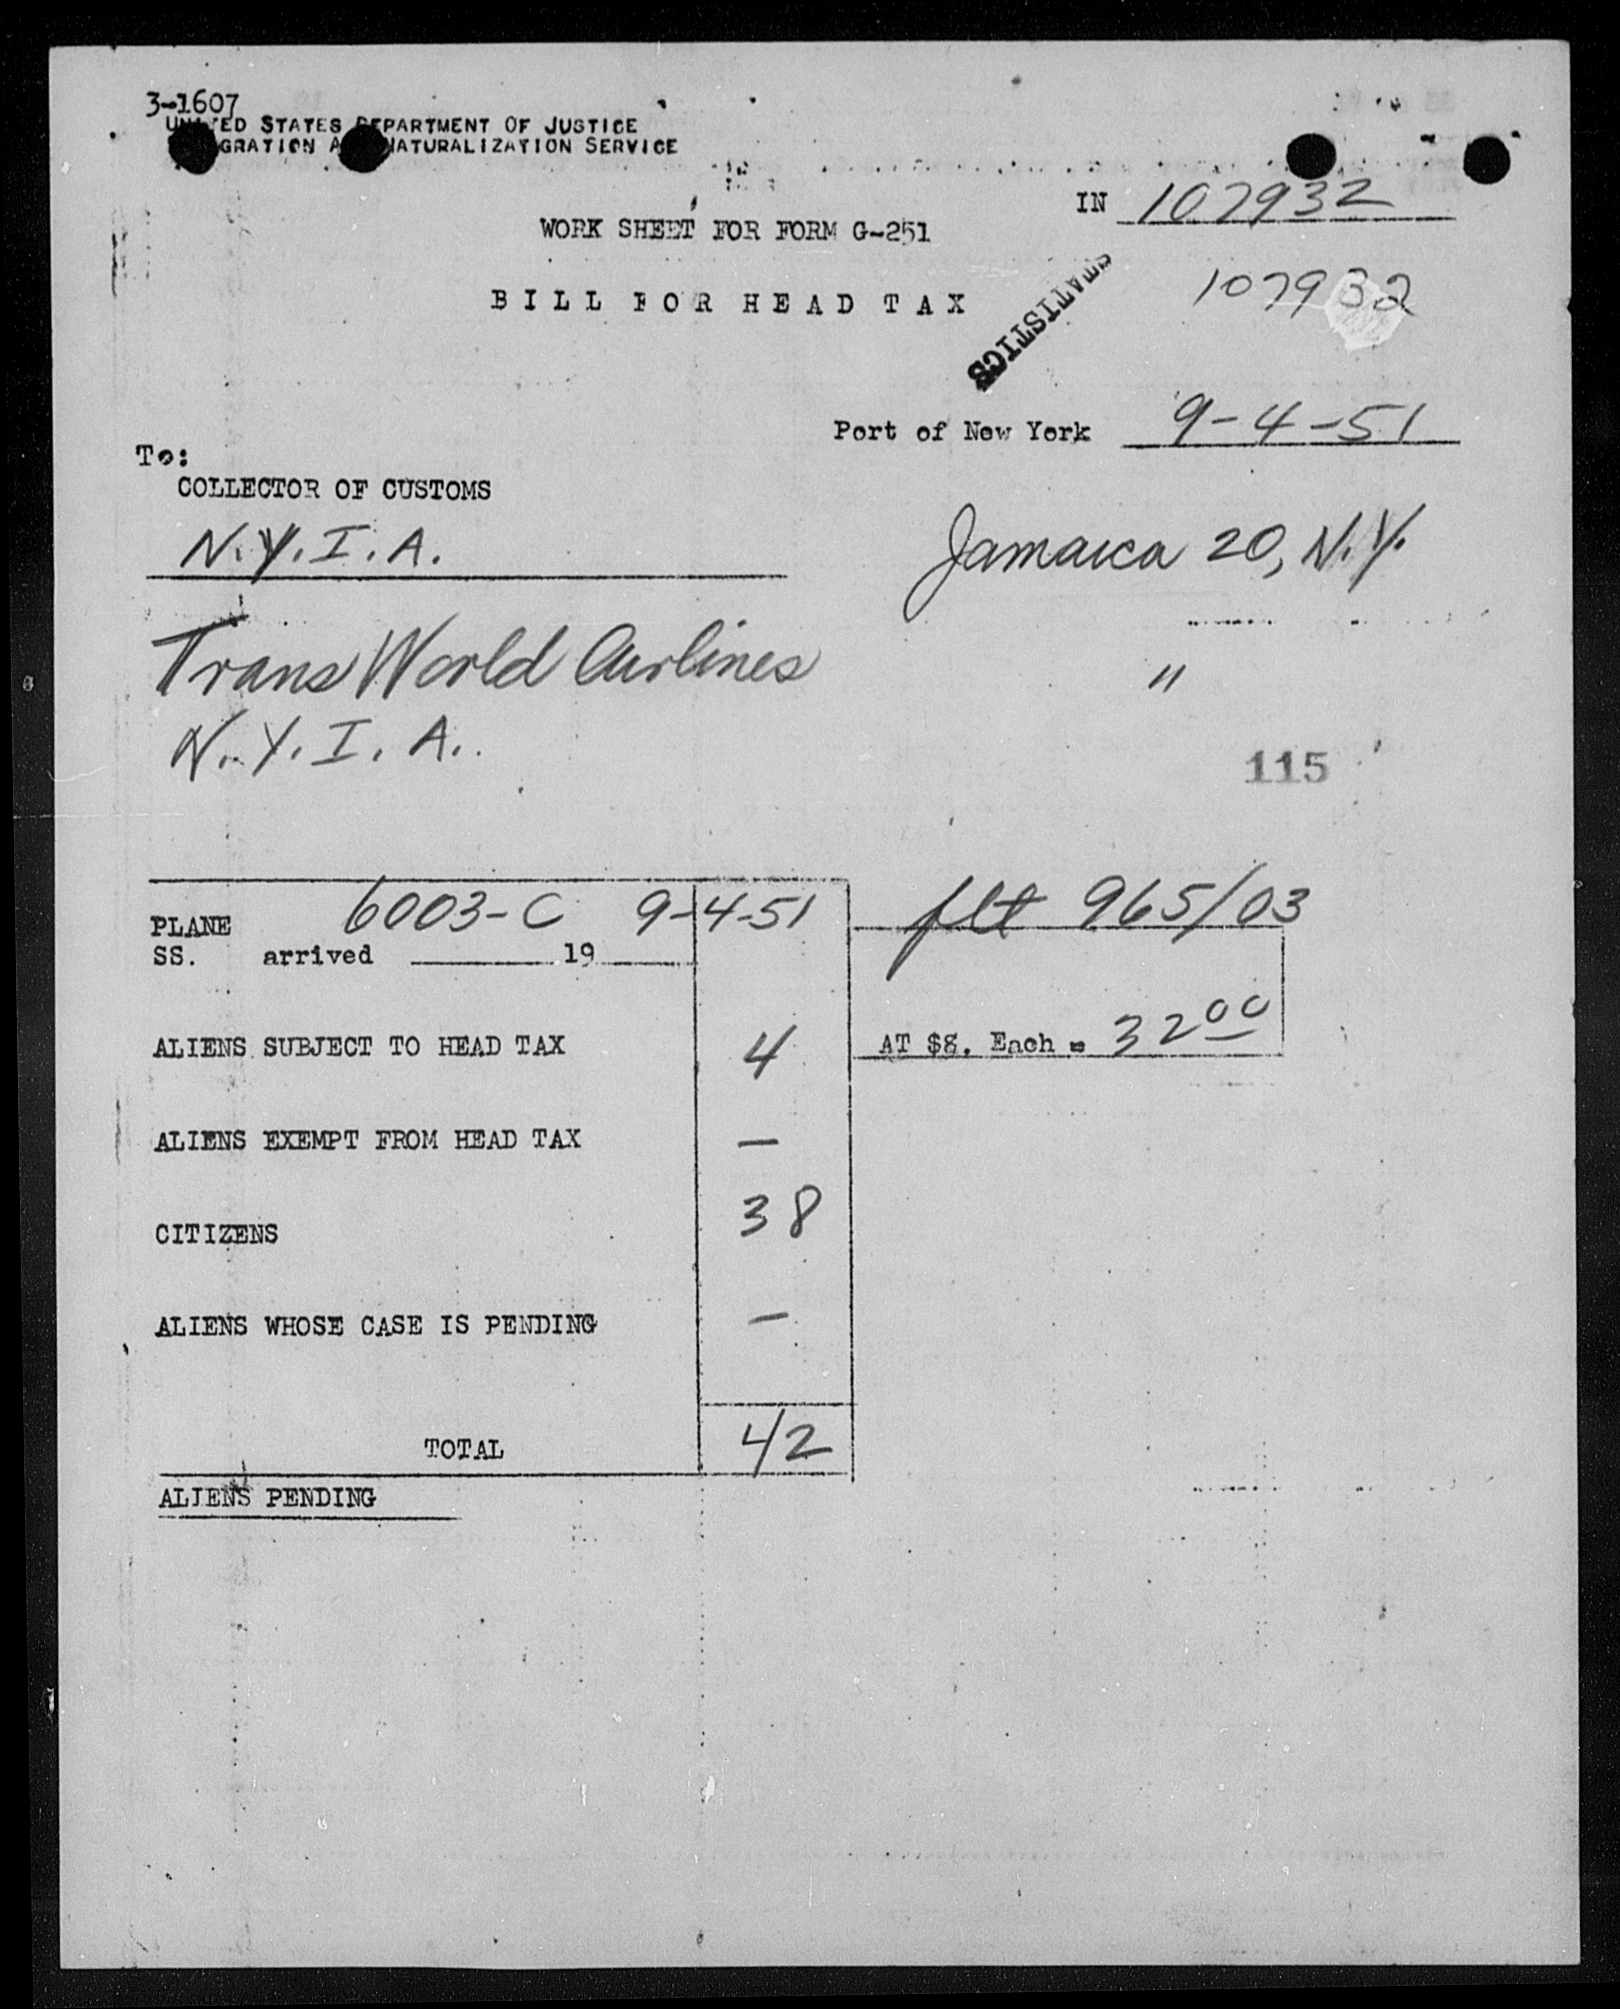 3-1607
UNITED STATES DEPARTMENT OF JUSTICE
IMMIGRATION AND NATURALIZATION SERVICE
IN 107932
WORK SHEET FOR FORM G-251
107932
BILL FOR HEAD TAX
STATISTICS
Port of New York 9-4-51
To:
COLLECTOR OF CUSTOMS
N.Y.I.A. Jamaica 20, N.Y.
Trans World Airlines "
N.Y.I.A.
115
6003-C 9-4-51 flt 965/03
PLANE
SS. arrived 19
ALIENS SUBJECT TO HEAD TAX 4 AT $8. Each = 32 00
ALIENS EXEMPT FROM HEAD TAX —
CITIZENS 38
ALIENS WHOSE CASE IS PENDING —
TOTAL 42
ALIENS PENDING